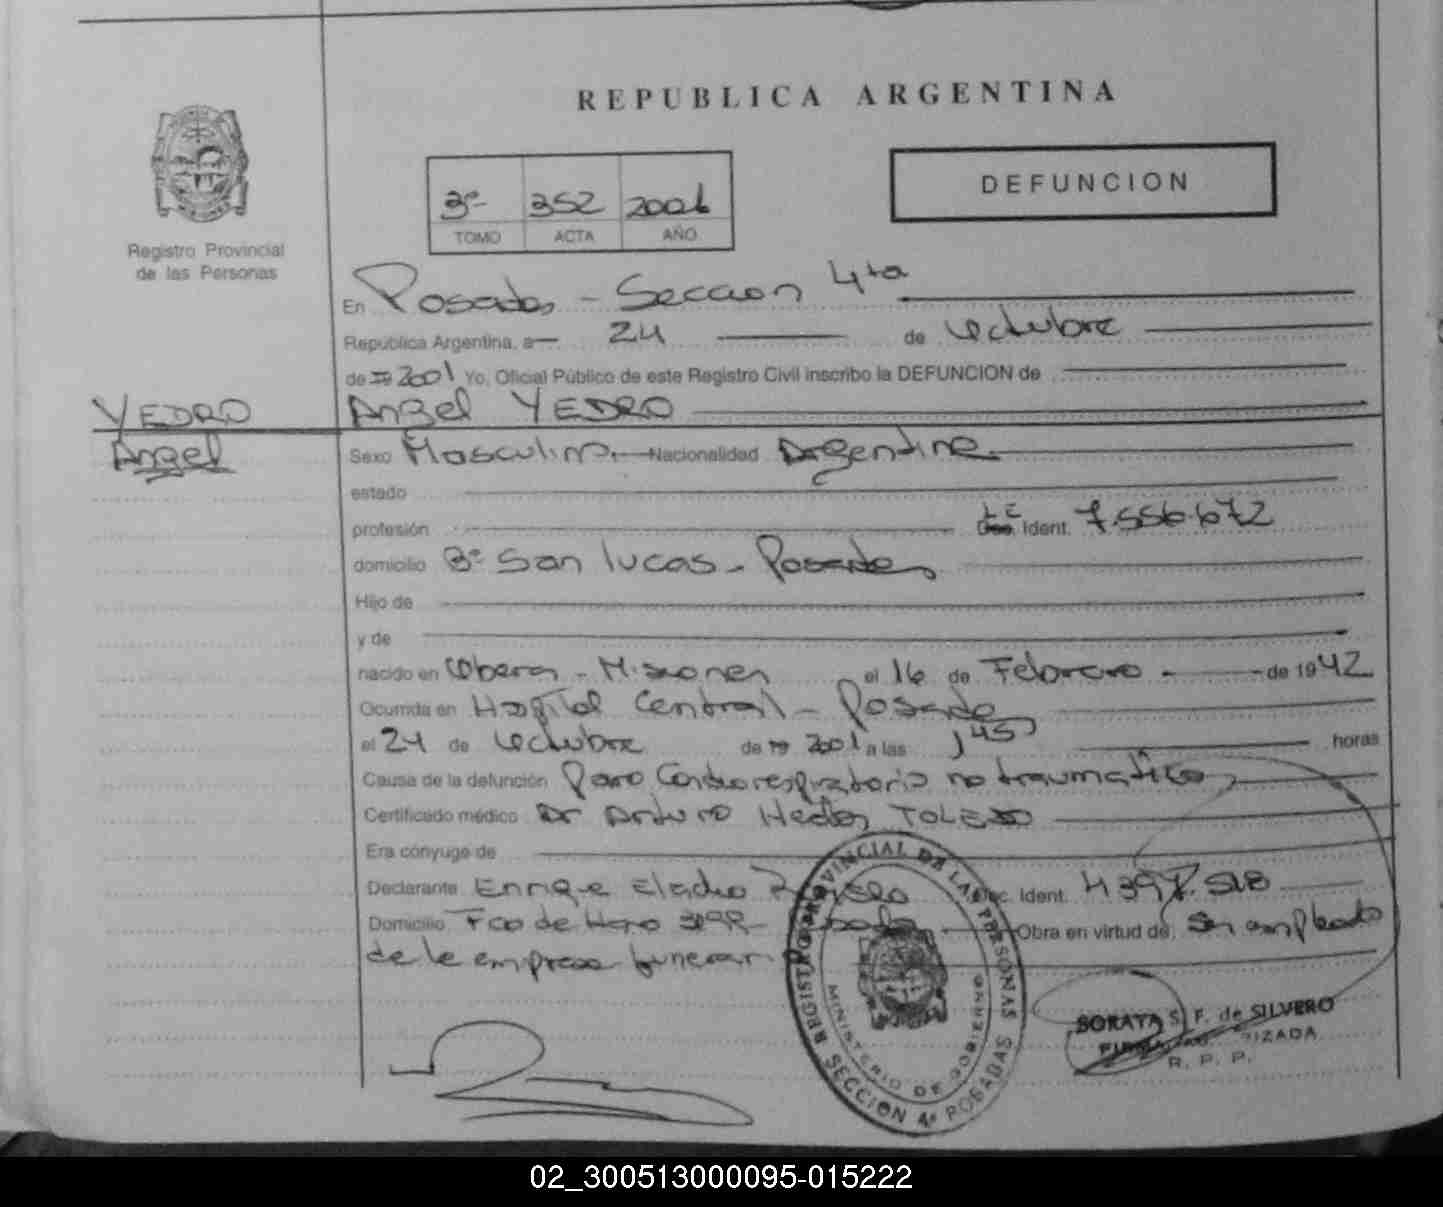 REPUBLICA ARGENTINA
DEFUNCION
3º 352 2001
TOMO ACTA AÑO
Registro Provincial
de las Personas
En Posadas - Seccion 4ta
Republica Argentina, a 24 de Octubre
de 19 2001 Yo, Oficial Público de este Registro Civil inscribo la DEFUNCION de
YEDRO
Angel
Angel YEDRO
Sexo Masculino Nacionalidad Argentina
estado
profesión L E Doc. Ident. 7.556.672
domicilio Bº San Lucas - Posadas
Hijo de
y de
nacido en Obera - Misiones el 16 de Febrero de 1942
Ocurrida en Hospital Central - Posadas
el 24 de Octubre de 19 2001 a las 1 45 horas
Causa de la defunción Paro Cardiorespiratorio no traumático
Certificado médico Dr Arturo Hector TOLEDO
Era cónyuge de
Declarante Enrique Eladio Doc. Ident. 4397.518
Domicilio Fco de Haro Posadas Obra en virtud de Ser empleado
de la empresa funeraria
REGISTRO PROVINCIAL DE LAS PERSONAS
MINISTERIO DE GOBIERNO
SECCION 4ª POSADAS
SORAYA S. F. de SILVERO
FIRMA AUTORIZADA
R. P. P.
02_300513000095-015222